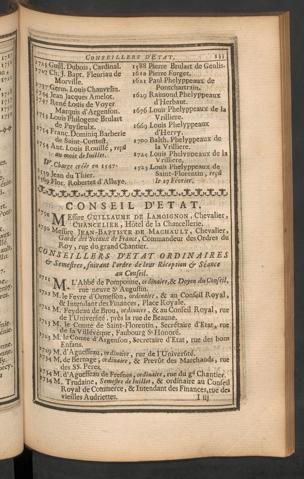 CONSEILLERS D'ETAT. 133
1723 Guill. Dubois, Cardinal.
1727 Ch. J. Bapt. Fleuriau de
Morville.
1727 Germ. Louis Chauvelin.
Jean Jacques Amelot.
René Louis de Voyer
Marquis d'Argenson.
Louis Philogene Brulart
de Puysieulx.
Franc. Dominiq. Barberie
de Saint-Contest.
1754 Ant. Louis Rouillé, reçû
au mois de Juillet.
IVe Charge créée en 1547.
Jean du Thier.
Flor. Robertet d'Alluye.
1588 Pierre Brulart de Genlis.
1610 Pierre Forget.
1621 Paul Phelyppeaux de
Pontchartrain.
1629 Raimond Phelyppeaux
d'Herbaut.
1676 Louis Phelyppeaux de la
Vrilliere.
1669 Louis Phelyppeaux
d'Hervy.
1700 Balth. Phelyppeaux de
la Vrilliere.
Louis Phelyppeaux de la
Vrilliere.
1725 Louis Phelyppeaux de
Saint-Florentin, reçû
le 17 Février.
CONSEIL D'ETAT,
1750 Messire GUILLAUME DE LAMOIGNON, Chevalier,
CHANCELIER, Hôtel de la Chancellerie.
1750 Messire JEAN-BAPTISTE DE MACHAULT, Chevalier,
Garde des Sceaux de France, Commandeur des Ordres du
Roy, rue du grand Chantier.
CONSEILLERS D'ETAT ORDINAIRES
& Semestres, suivant l'ordre de leur Réception & Séance
au Conseil.
M. L'Abbé de Pomponne, ordinaire, & Doyen du Conseil,
rue neuve St Augustin.
M. le Fevre d'Ormesson, ordinaire, & au Conseil Royal,
& Intendant des Finances, Place Royale.
M. Feydeau de Brou, ordinaire, & au Conseil Royal, rue
de l'Université, près la rue de Beaune.
M. le Comte de Saint-Florentin, Secretaire d'Etat, rue
de la Villévêque, Faubourg St Honoré.
M. le Comte d'Argenson, Secretaire d'Etat, rue des bons
Enfans.
M. d'Aguesseau, ordinaire, rue de l'Université.
1734 M. de Bernage, ordinaire, & Prevôt des Marchands, rue
des SS. Peres.
1734 M. d'Aguesseau de Fresnes, ordinaire, rue du gd Chantier.
1734 M. Trudaine, Semestre de Juillet, & ordinaire au Conseil
Royal de Commerce, & Intendant des Finances, rue des
vieilles Audriettes. I iij